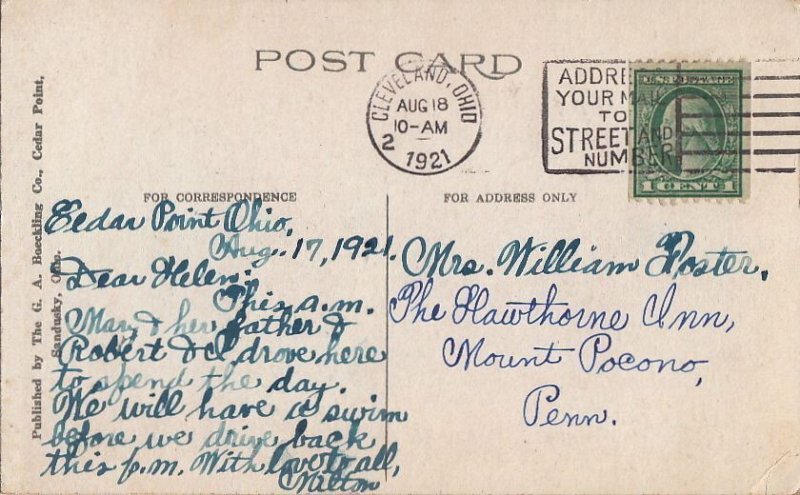 POST CARD
CLEVELAND, OHIO
AUG 18
10-AM
2
1921
ADDRE
YOUR MAIL
TO
STREET AND
NUMBER
1 CENT 1
Published by The G. A. Boeckling Co., Cedar Point,
Sandusky, Ohio.
FOR CORRESPONDENCE
Cedar Point Ohio,
Aug. 17, 1921.
Dear Helen:
This a.m.
Mary & her father &
Robert & I drove here
to spend the day.
We will have a swim
before we drive back
this p.m. With love to all,
Milton
FOR ADDRESS ONLY
Mrs. William Poster,
The Hawthorne Inn,
Mount Pocono,
Penn.